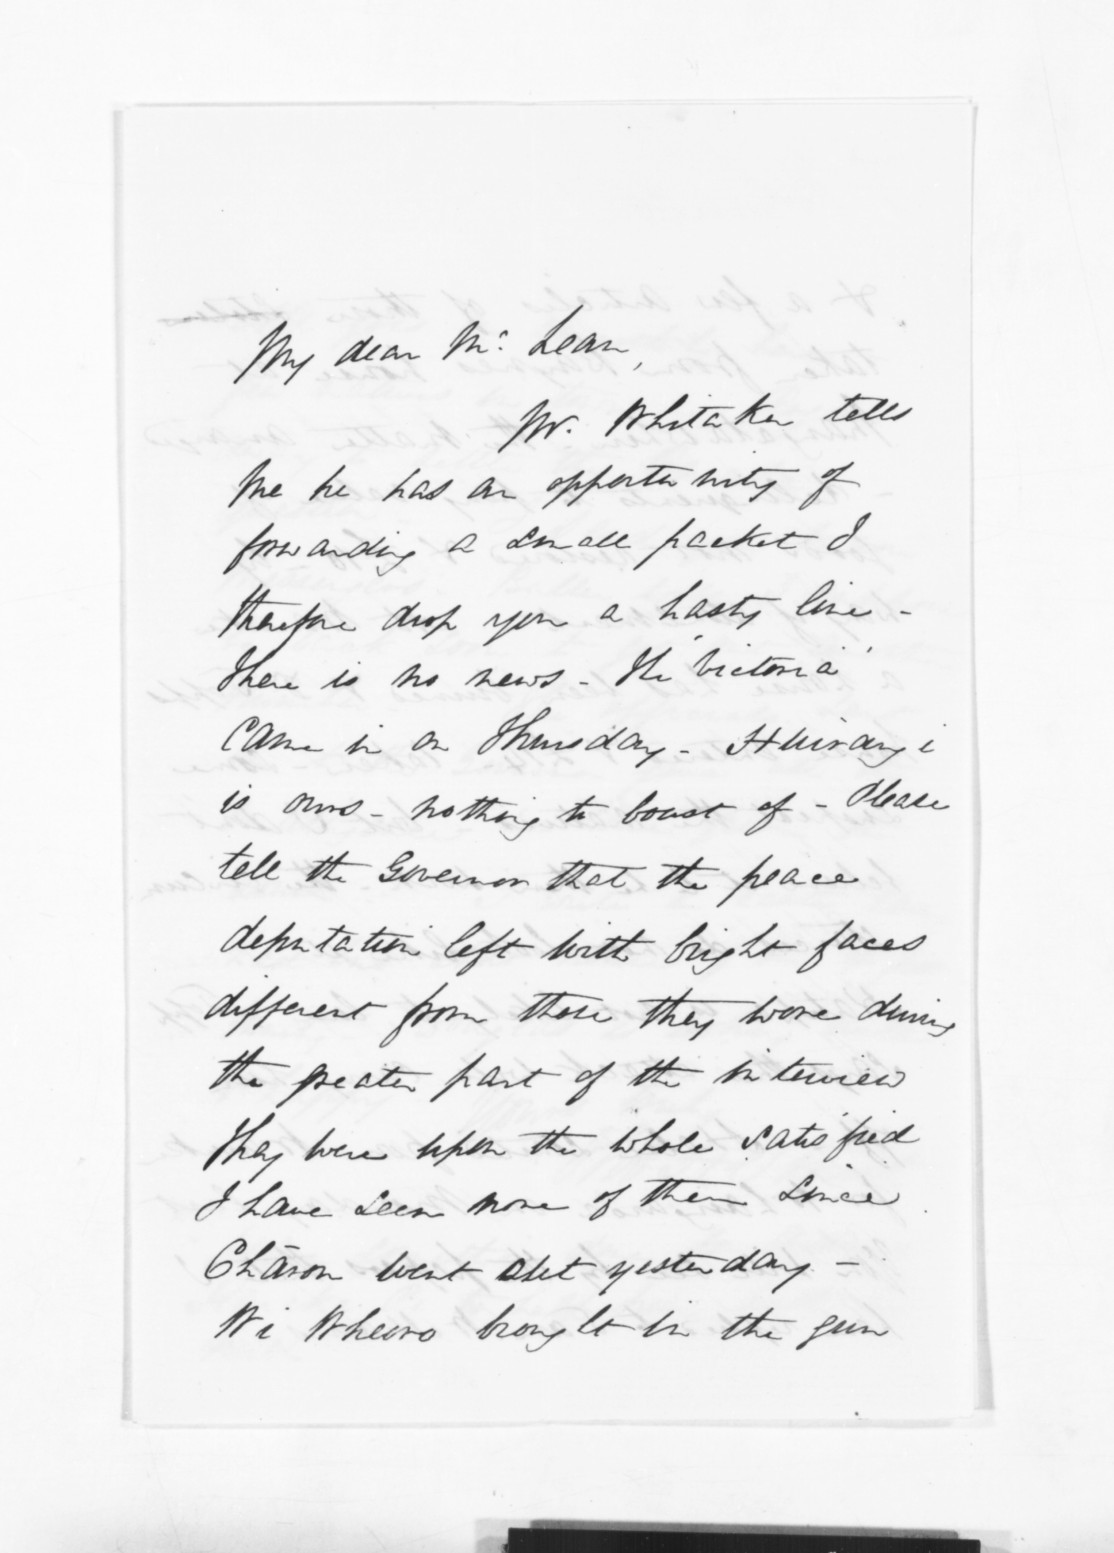 My dear McLean,
Mr. Whitaker tells
me he has an opportunity of
forwarding a small packet I
therefore drop you a hasty line -
There is no news - The "Victoria"
came in on Thursday - Huirangi
is ours - nothing to boast of - Please
tell the Governor that the peace
deputation left with bright faces
different from those they wore during
the greater part of the interview
They were upon the whole satisfied
I have seen none of them since
Charon went yesterday -
Wi Wheoro brought in the gun